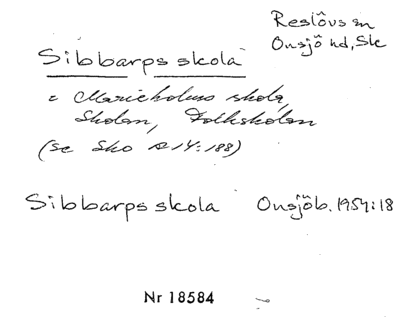 Reslövs sn
Onsjö hd, Sk
Sibbarps skola
= Marieholms skola,
Skolan, Folkskolan
(se Sko A 14:188)
Sibbarps skola Onsjöb. 1954:18
Nr 18584